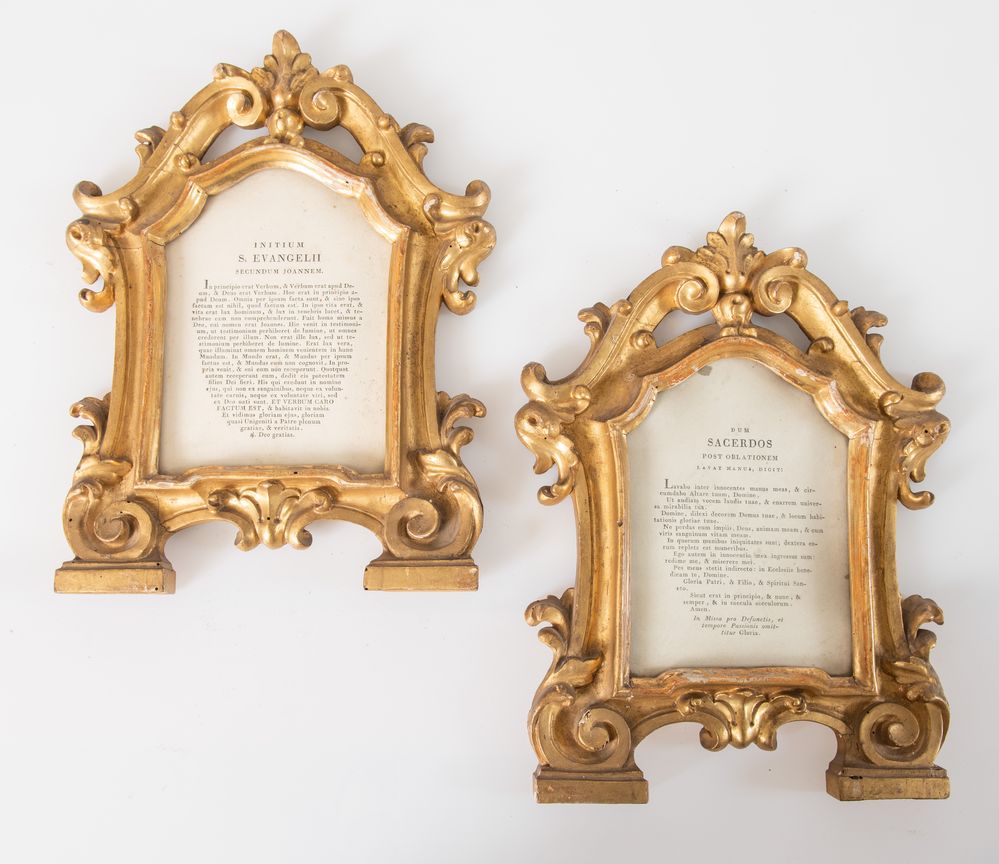 INITIUM
S. EVANGELII
SECUNDUM JOANNEM.
In principio erat Verbum, & Verbum erat apud De-
um, & Deus erat Verbum. Hoc erat in principio a-
pud Deum. Omnia per ipsum facta sunt, & sine ipso
factum est nihil, quod factum est. In ipso vita erat, &
vita erat lux hominum, & lux in tenebris lucet, & te-
nebrae eam non comprehenderunt. Fuit homo missus a
Deo, cui nomen erat Joannes. Hic venit in testimoni-
um, ut testimonium perhiberet de lumine, ut omnes
crederent per illum. Non erat ille lux, sed ut te-
stimonium perhiberet de lumine. Erat lux vera,
quae illuminat omnem hominem venientem in hunc
Mundum. In Mundo erat, & Mundus per ipsum
factus est, & Mundus eum non cognovit. In pro-
pria venit, & sui eum non receperunt. Quotquot
autem receperunt eum, dedit eis potestatem
filios Dei fieri. His qui credunt in nomine
ejus, qui non ex sanguinibus, neque ex volun-
tate carnis, neque ex voluntate viri, sed
ex Deo nati sunt. ET VERBUM CARO
FACTUM EST, & habitavit in nobis.
Et vidimus gloriam ejus, gloriam
quasi Unigeniti a Patre plenum
gratiae, & veritatis.
℟. Deo gratias.
DUM
SACERDOS
POST OBLATIONEM
LAVAT MANUS, DICIT:
Lavabo inter innocentes manus meas, & cir-
cumdabo Altare tuum, Domine.
Ut audiam vocem laudis tuae, & enarrem univer-
sa mirabilia tua.
Domine, dilexi decorem Domus tuae, & locum habi-
tationis gloriae tuae.
Ne perdas cum impiis, Deus, animam meam, & cum
viris sanguinum vitam meam.
In quorum manibus iniquitates sunt; dextera eo-
rum repleta est muneribus.
Ego autem in innocentia mea ingressus sum:
redime me, & miserere mei.
Pes meus stetit indirecto: in Ecclesiis bene-
dicam te, Domine.
Gloria Patri, & Filio, & Spiritui San-
cto.
Sicut erat in principio, & nunc, &
semper, & in saecula saeculorum.
Amen.
In Missa pro Defunctis, et
tempore Passionis omit-
titur Gloria.